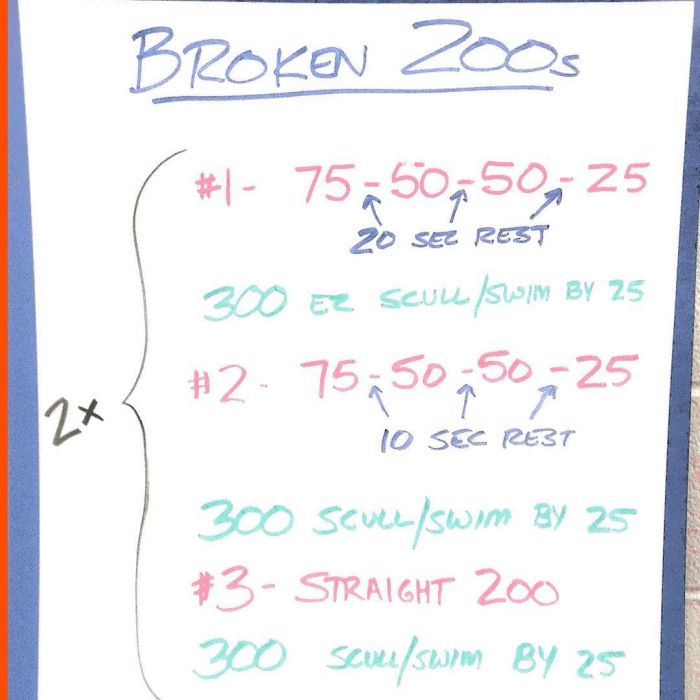 BROKEN 200s
#1- 75-50-50-25
20 SEC REST
300 EZ SCULL/SWIM BY 25
2x
#2- 75-50-50-25
10 SEC REST
300 SCULL/SWIM BY 25
#3- STRAIGHT 200
300 SCULL/SWIM BY 25